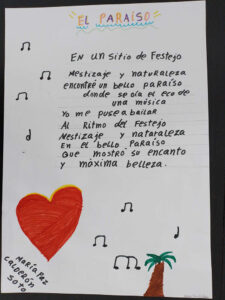 EL PARAÍSO
EN UN Sitio de Festejo
Mestizaje y naturaleza
encontré un bello paraíso
donde se oía el eco de
una música
Yo me puse a bailar
Al Ritmo del Festejo
Mestizaje y naturaleza
En el bello Paraíso
Que mostró su encanto
y máxima belleza.
MARÍA PAZ
CALDERÓN
SOTO